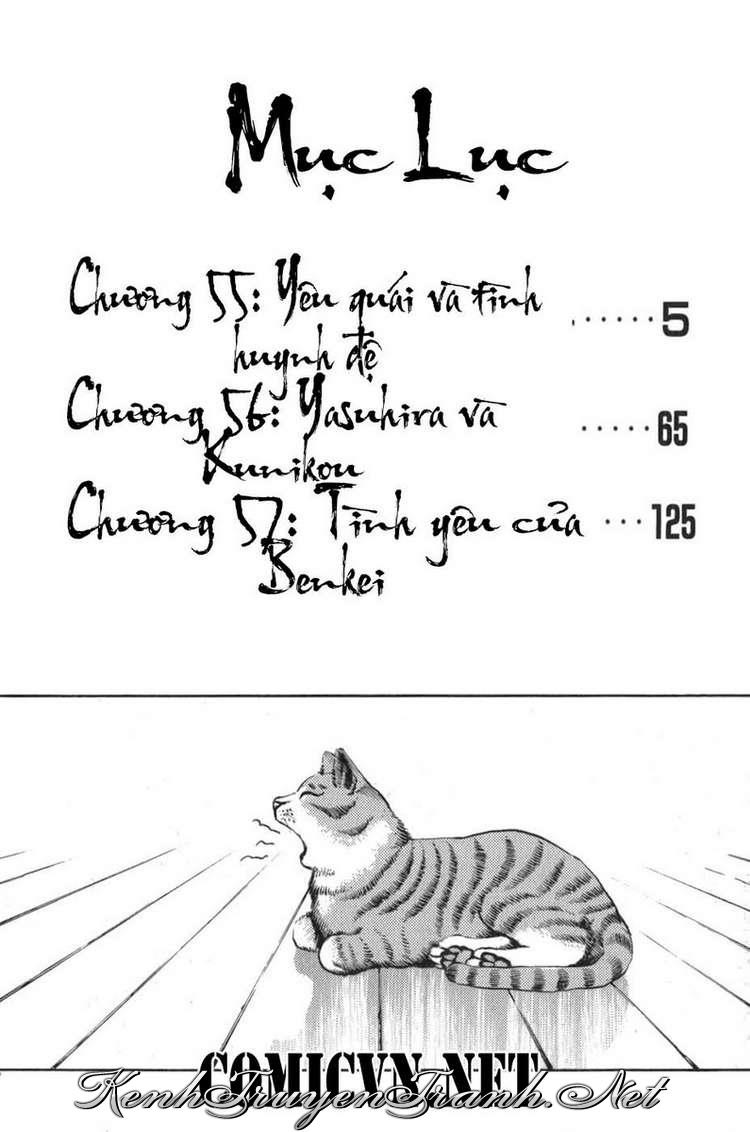 Mục Lục
Chương 55: Yêu quái và tình ......5
huynh đệ
Chương 56: Yasuhira và .....65
Kunikou
Chương 57: Tình yêu của ...125
Benkei
COMICVN.NET
KenhTruyenTranh.Net